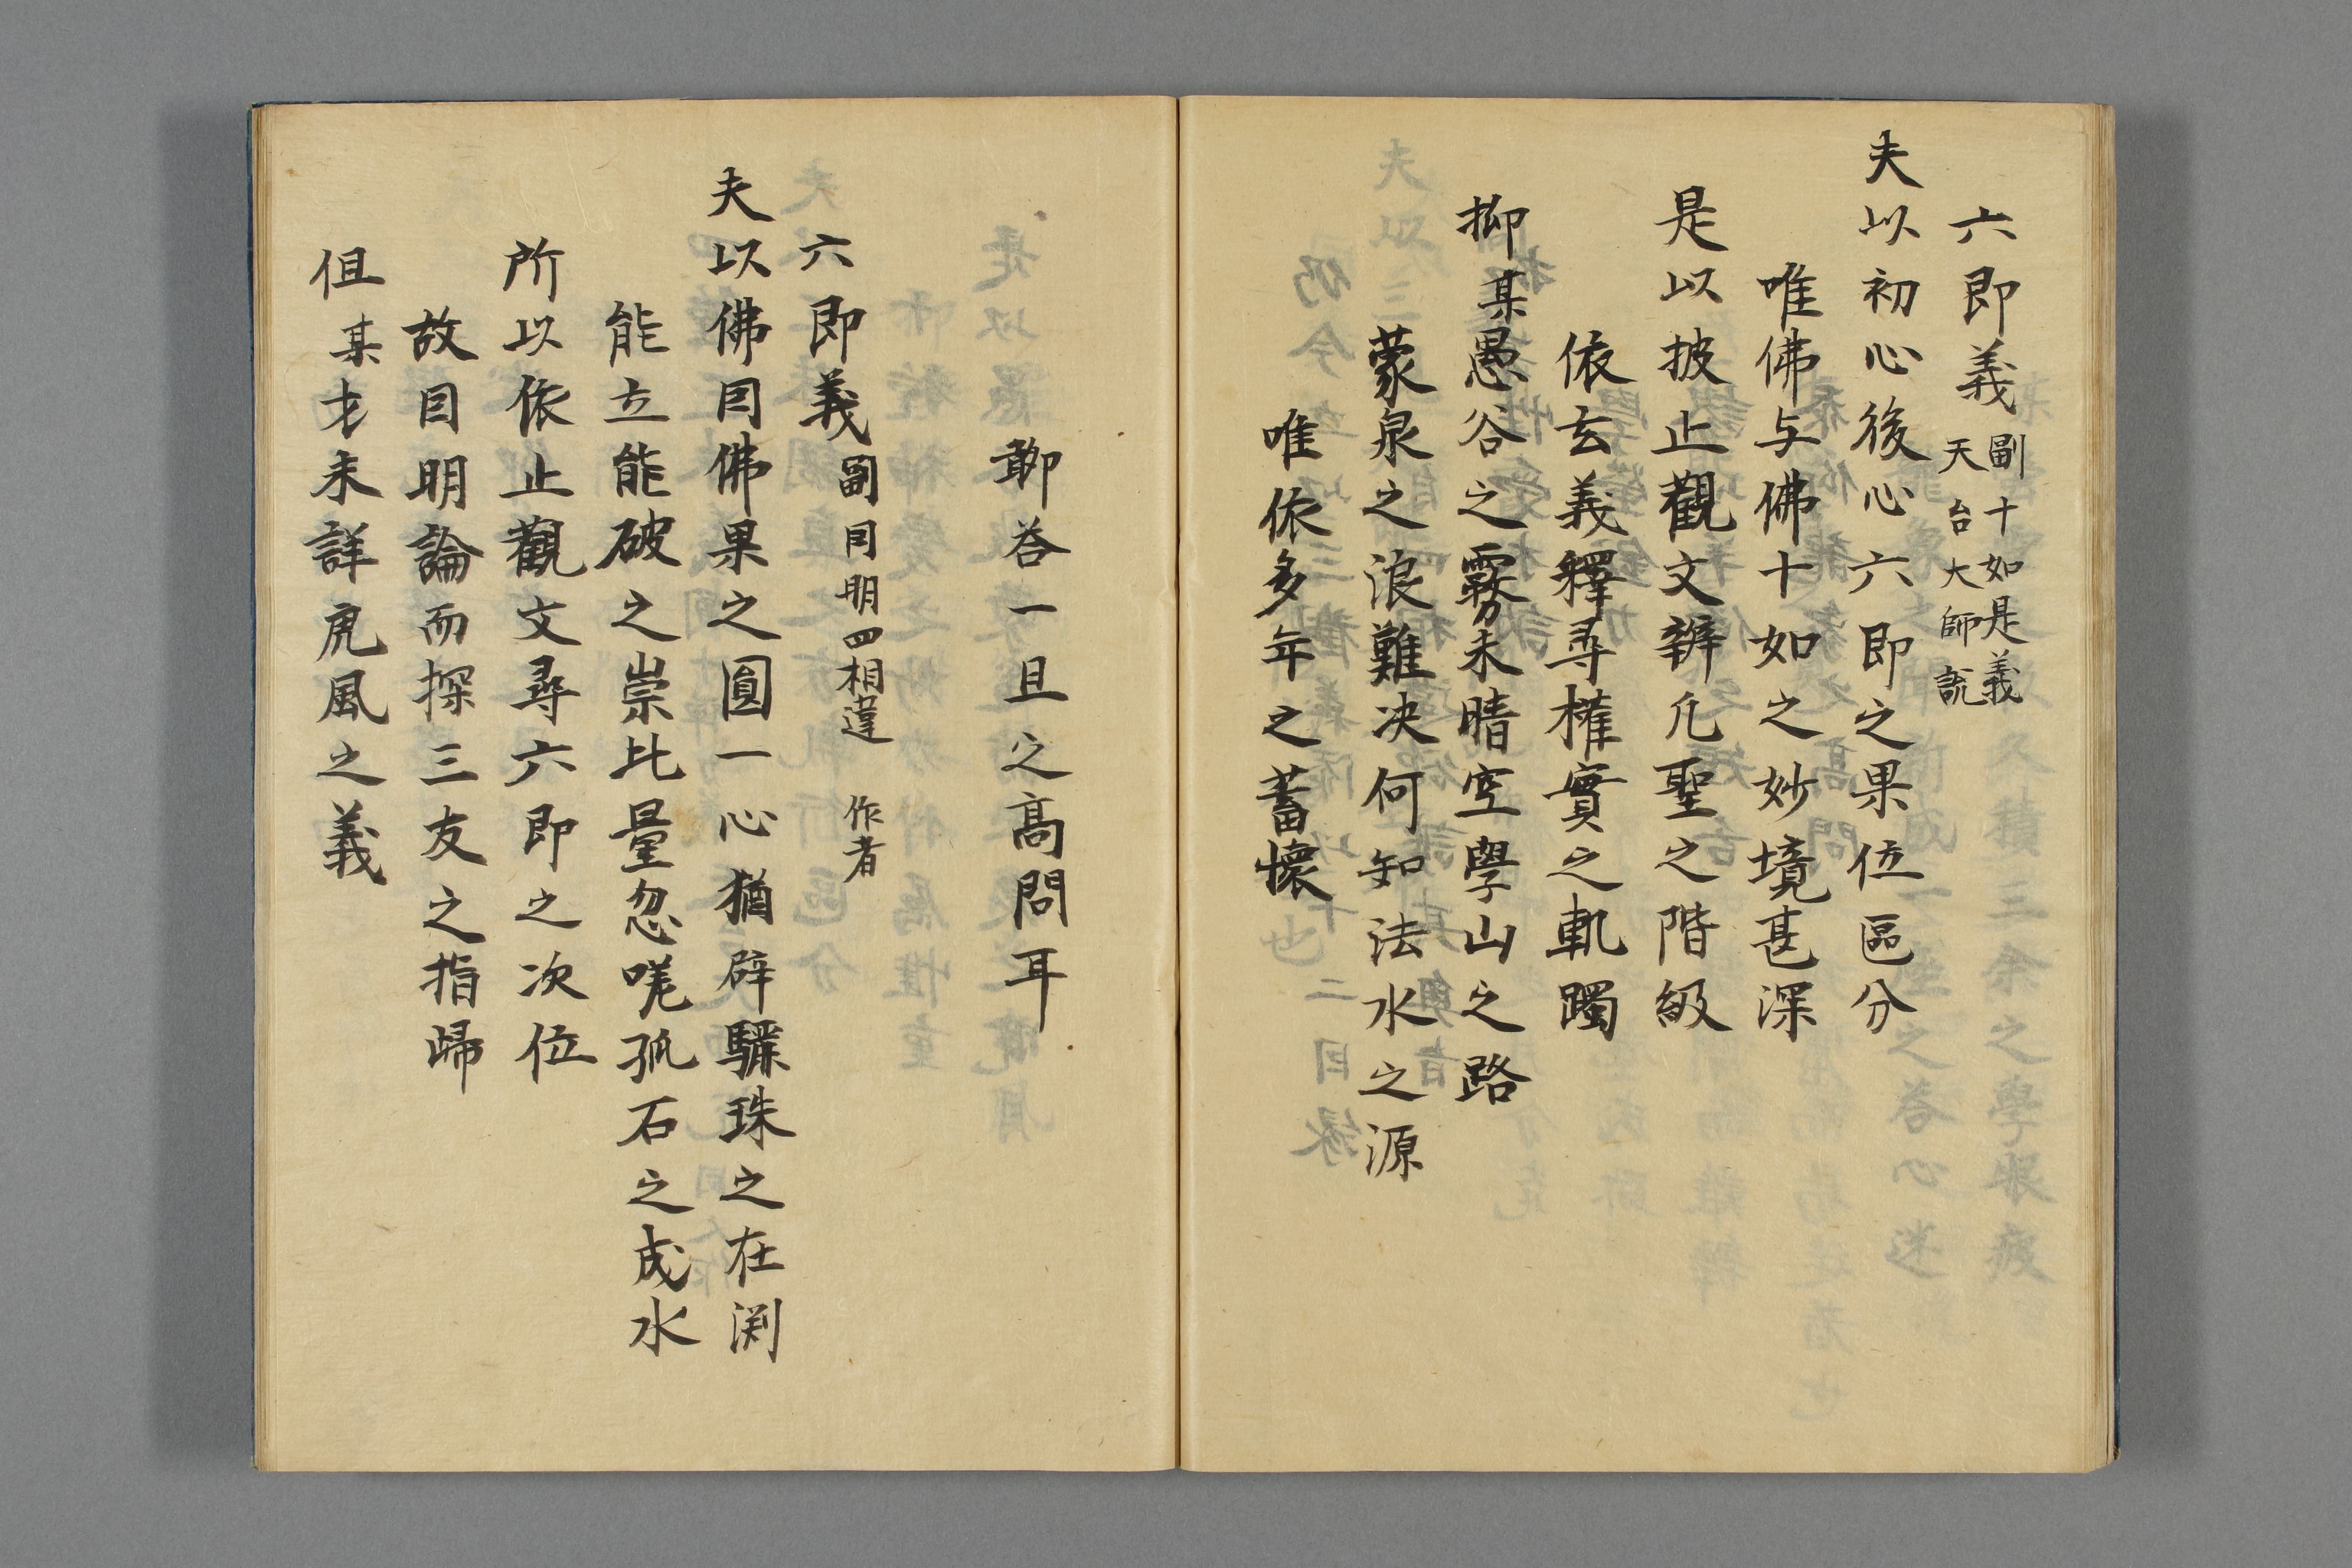 六即義 副十如是義
天台大師説
夫以初心後心六即之果位區分
唯佛与佛十如之妙境甚深
是以披止觀文辨凢聖之階級
依玄義釋尋權實之軌躅
抑某愚谷之霧未晴空學山之路
蒙泉之浪難決何知法水之源
唯依多年之蓄懷
鄣荅一且之高問耳
六即義 副因明四相違 作者
夫以佛因佛果之圓一心猶辟驪珠之在渕
能立能破之崇比量忽咲孤石之成水
所以依止觀文尋六即之次位
故因明論而探三友之指歸
但某才未詳虎風之義